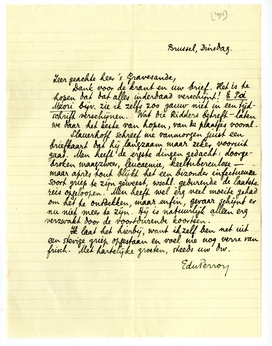 (1931)
Brussel, Dinsdag.
Zeer geachte heer 's Gravesande,
Dank voor de krant en uw brief. Het is te
hopen dat dat alles inderdaad verschijnt!
Maori bijv. zie ik zelf zoo gauw niet in een tijd-
schrift verschijnen. Wat die Ridders betreft - laten
we daar het beste van hopen, van de plaatjes vooral.
Slauerhoff schreef me vanmorgen juist een
briefkaart dat hij langzaam maar zeker vooruit
gaat. Men heeft de ergste dingen gedacht:
maagzweer, leucaemie, keeltuberculose —
maar après tout blijkt het een bizonder infectueuze
soort griep te zijn geweest, wschl. gedurende de laatste
reis opgeloopen. Men heeft wel erg veel moeite gehad
om het te ontdekken, maar enfin, gevaar schijnt er
nu niet meer te zijn. Hij is natuurlijk alleen erg
verzwakt door de voortdurende koortsen.
Ik laat het hierbij, want ik zelf ben net uit
een stevige griep opgestaan en voel me nog verre van
frisch. Met hartelijke groeten, steeds uw dw.
EduPerron